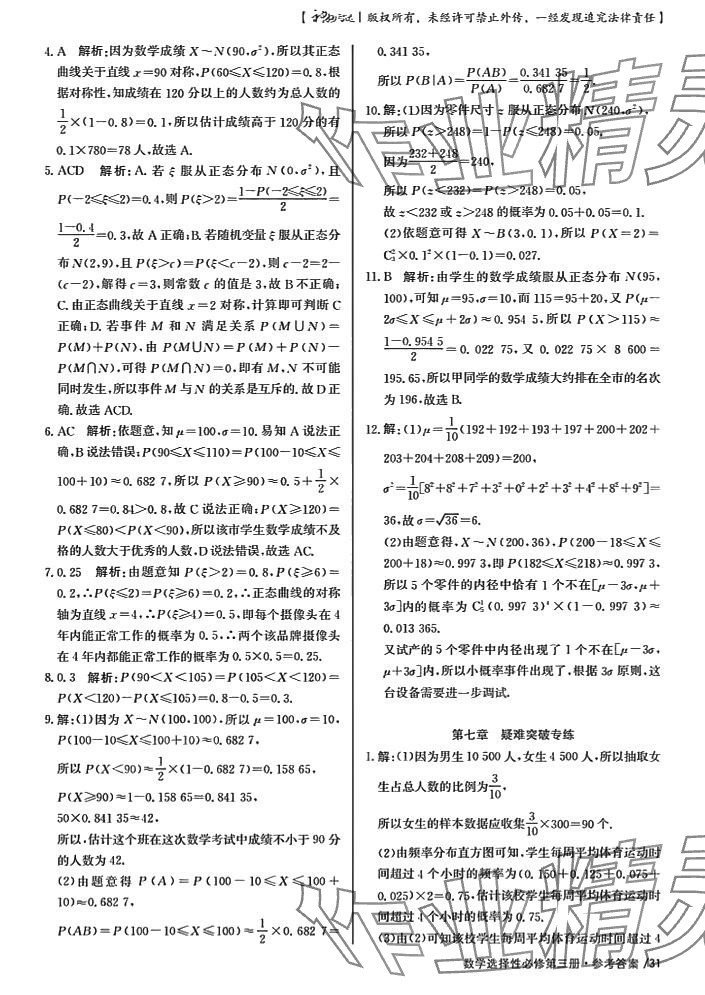 | 版权所有，未经许可禁止外传，一经发现追究法律责任】
4. A　解析:因为数学成绩 X～N(90,σ²),所以其正态
曲线关于直线 x=90 对称,P(60≤X≤120)=0.8,根
据对称性,知成绩在 120 分以上的人数约为总人数的
1/2×(1-0.8)=0.1,所以估计成绩高于 120 分的有
0.1×780=78 人,故选 A.
5. ACD　解析:A. 若 ξ 服从正态分布 N(0,σ²),且
P(-2≤ξ≤2)=0.4,则 P(ξ>2)=(1-P(-2≤ξ≤2))/2=
(1-0.4)/2=0.3,故 A 正确;B. 若随机变量 ξ 服从正态分
布 N(2,9),且 P(ξ>c)=P(ξ<c-2),则 c-2=2-
(c-2),解得 c=3,则常数 c 的值是 3,故 B 不正确;
C. 由正态曲线关于直线 x=2 对称,计算即可判断 C
正确;D. 若事件 M 和 N 满足关系 P(M∪N)=
P(M)+P(N),由 P(M∪N)=P(M)+P(N)-
P(M∩N),可得 P(M∩N)=0,即有 M,N 不可能
同时发生,所以事件 M 与 N 的关系是互斥的. 故 D 正
确. 故选 ACD.
6. AC　解析:依题意,知 μ=100,σ=10. 易知 A 说法正
确,B 说法错误;P(90≤X≤110)=P(100-10≤X≤
100+10)≈0.682 7,所以 P(X≥90)≈0.5+1/2×
0.682 7≈0.84>0.8,故 C 说法正确;P(X≥120)=
P(X≤80)<P(X<90),所以该市学生数学成绩不及
格的人数大于优秀的人数,D 说法错误,故选 AC.
7. 0.25　解析:由题意知 P(ξ>2)=0.8,P(ξ≥6)=
0.2,∴P(ξ≤2)=P(ξ≥6)=0.2,∴正态曲线的对称
轴为直线 x=4,∴P(ξ≥4)=0.5,即每个摄像头在 4
年内能正常工作的概率为 0.5,∴两个该品牌摄像头
在 4 年内都能正常工作的概率为 0.5×0.5=0.25.
8. 0.3　解析:P(90<X<105)=P(105<X<120)=
P(X<120)-P(X≤105)=0.8-0.5=0.3.
9. 解:(1)因为 X～N(100,100),所以 μ=100,σ=10,
P(100-10≤X≤100+10)≈0.682 7,
所以 P(X<90)≈1/2×(1-0.682 7)=0.158 65,
P(X≥90)≈1-0.158 65=0.841 35,
50×0.841 35≈42,
所以,估计这个班在这次数学考试中成绩不小于 90 分
的人数为 42.
(2)由题意得 P(A)=P(100-10≤X≤100+
10)≈0.682 7,
P(AB)=P(100-10≤X≤100)≈1/2×0.682 7=
0.341 35,
所以 P(B|A)=P(AB)/P(A)=0.341 35/0.682 7=1/2.
10. 解:(1)因为零件尺寸 z 服从正态分布 N(240,σ²),
所以 P(z>248)=1-P(z≤248)=0.05,
因为(232+248)/2=240,
所以 P(z<232)=P(z>248)=0.05,
故 z<232 或 z>248 的概率为 0.05+0.05=0.1.
(2)依题意可得 X～B(3,0.1),所以 P(X=2)=
C₃²×0.1²×(1-0.1)=0.027.
11. B　解析:由学生的数学成绩服从正态分布 N(95,
100),可知 μ=95,σ=10,而 115=95+20,又 P(μ-
2σ≤X≤μ+2σ)≈0.954 5,所以 P(X>115)≈
(1-0.954 5)/2=0.022 75,又 0.022 75×8 600=
195.65,所以甲同学的数学成绩大约排在全市的名次
为 196,故选 B.
12. 解:(1)μ=1/10(192+192+193+197+200+202+
203+204+208+209)=200,
σ²=1/10[8²+8²+7²+3²+0²+2²+3²+4²+8²+9²]=
36,故 σ=√36=6.
(2)由题意得,X～N(200,36),P(200-18≤X≤
200+18)≈0.997 3,即 P(182≤X≤218)≈0.997 3,
所以 5 个零件的内径中恰有 1 个不在[μ-3σ,μ+
3σ]内的概率为 C₅¹(0.997 3)⁴×(1-0.997 3)≈
0.013 365.
又试产的 5 个零件中内径出现了 1 个不在[μ-3σ,
μ+3σ]内,所以小概率事件出现了,根据 3σ 原则,这
台设备需要进一步调试.
第七章　疑难突破专练
1. 解:(1)因为男生 10 500 人,女生 4 500 人,所以抽取女
生占总人数的比例为3/10,
所以女生的样本数据应收集3/10×300=90 个.
(2)由频率分布直方图可知,学生每周平均体育运动时
间超过 4 个小时的频率为(0.150+0.125+0.075+
0.025)×2=0.75,估计该校学生每周平均体育运动时
间超过 4 个小时的概率为 0.75.
(3)由(2)可知该校学生每周平均体育运动时间超过 4
数学选择性必修第三册·参考答案 /31
作业精灵
作业精灵